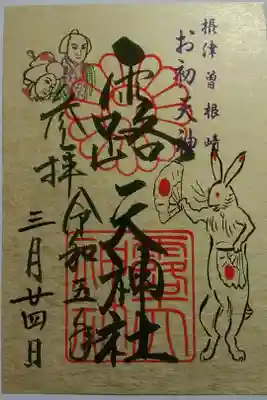 摂津曽根崎
お初天神
露天神社
奉拝
令和五年
三月廿四日